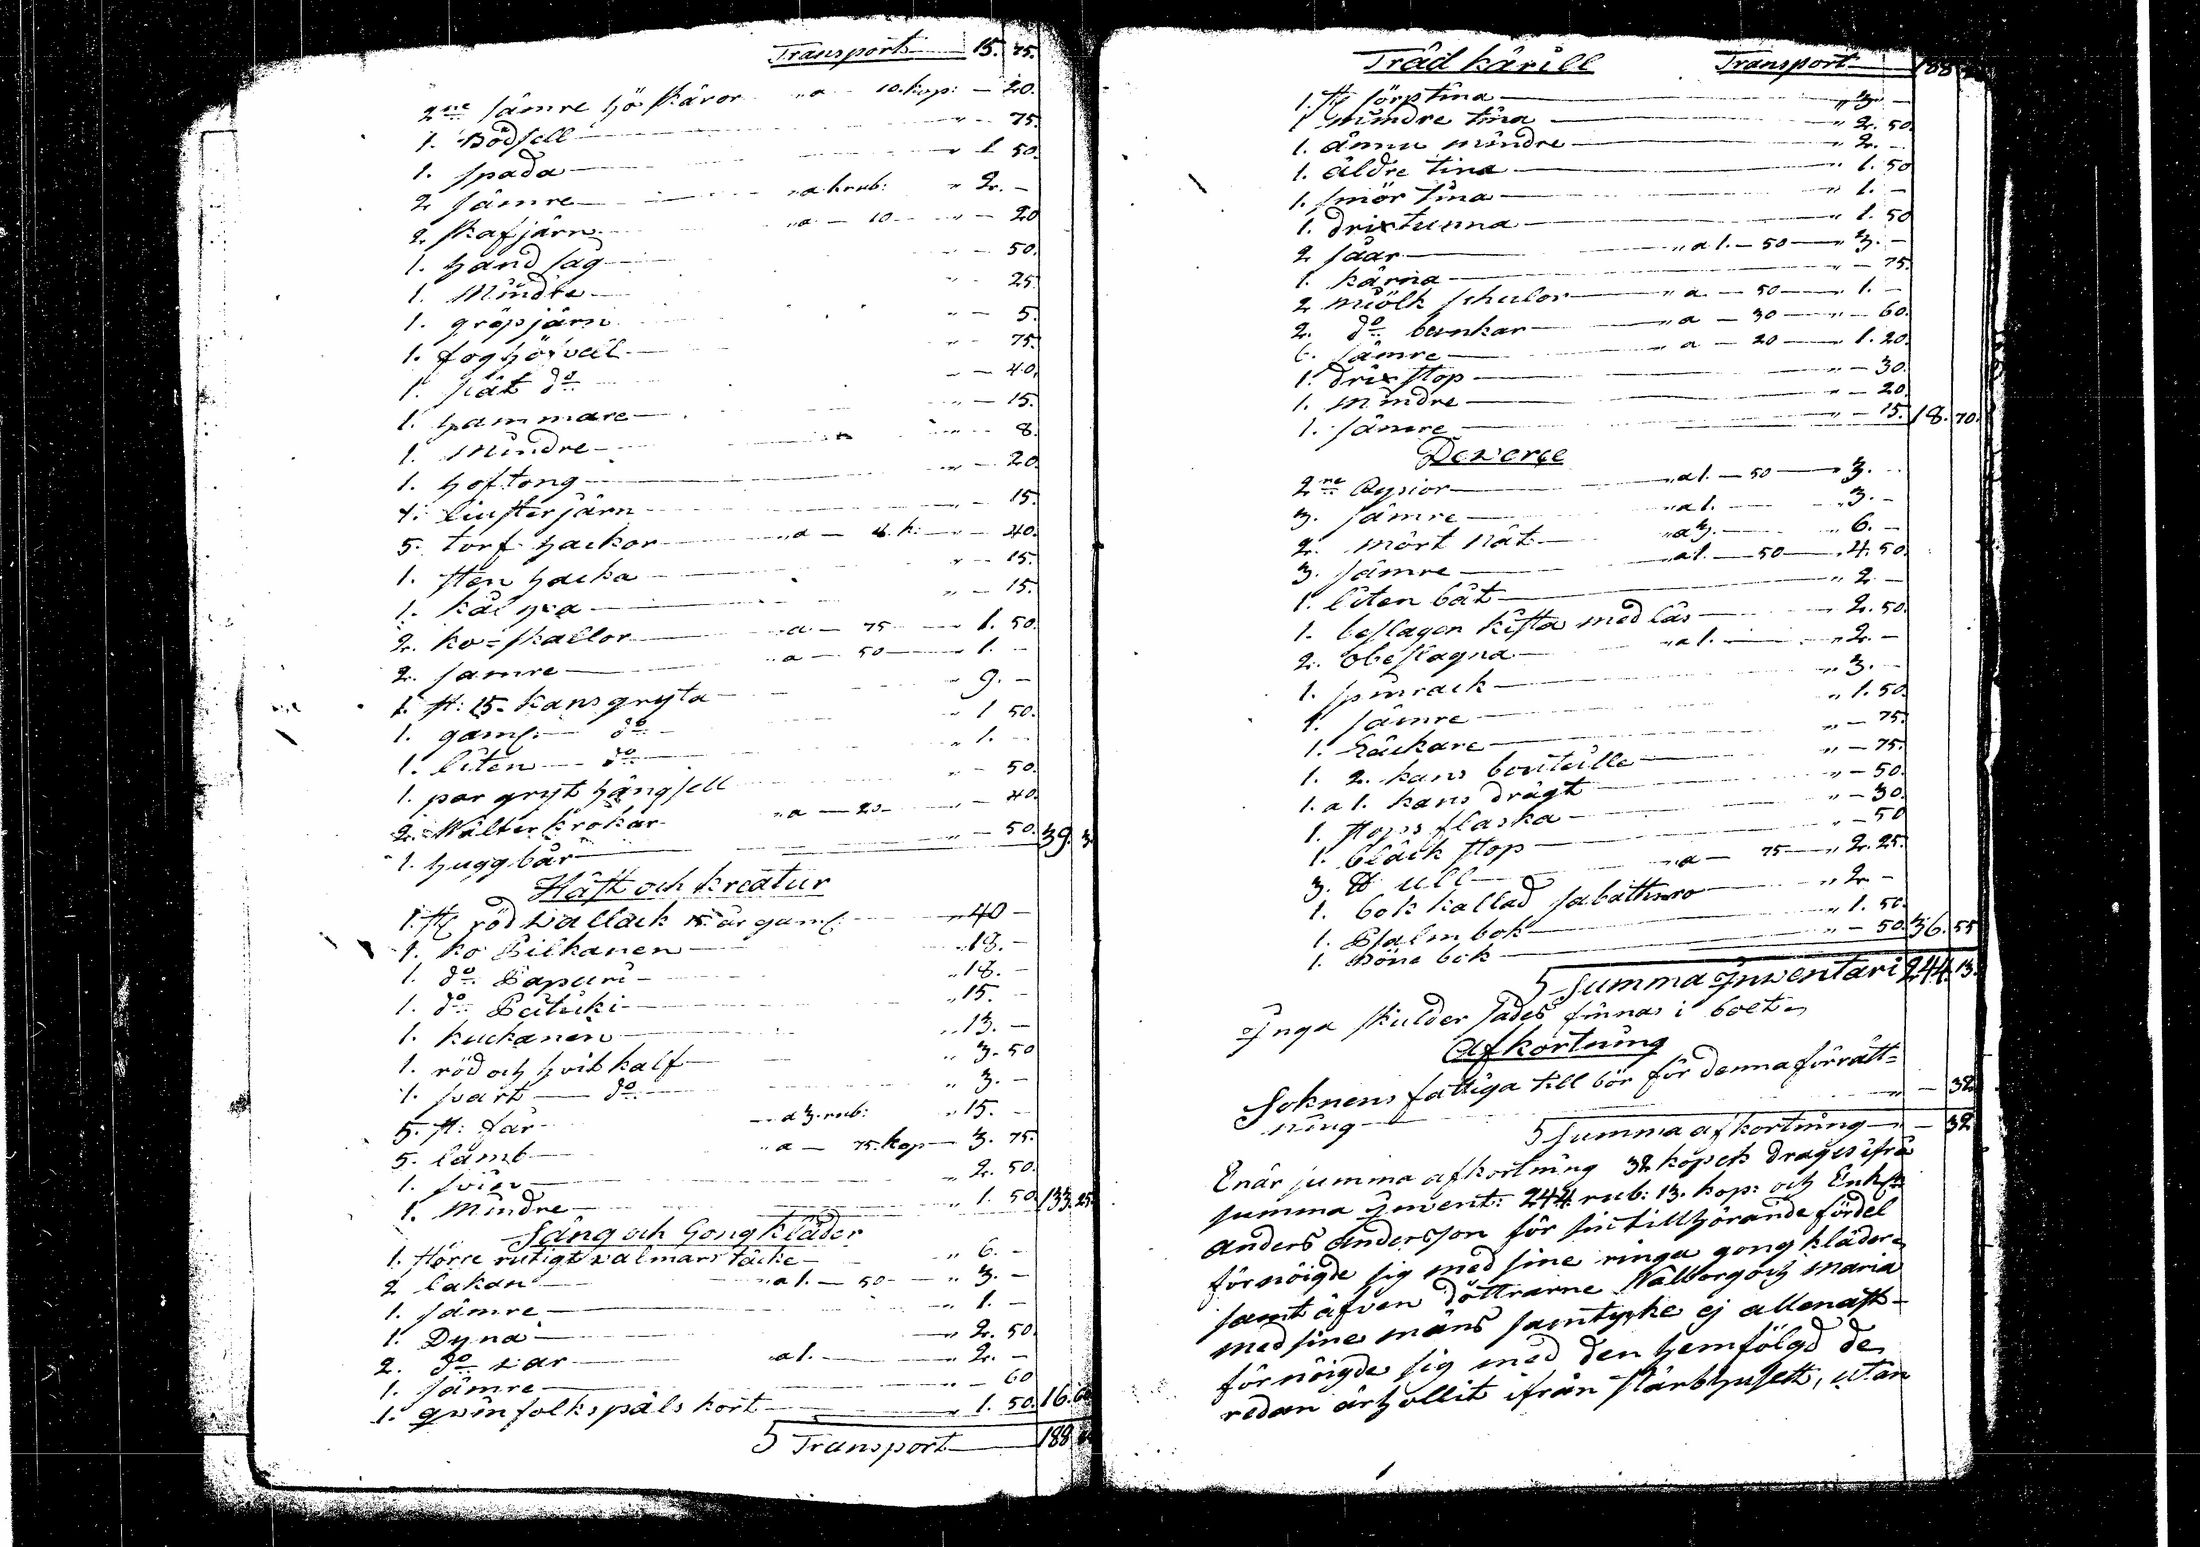 Transport 15. 75.
2ne sämre hö skäror " a — 10. kop: — 20.
1. Bödsell " — 75.
1. spada " 1 50.
2 sämre " a 1. rub: " 2. —
2. skafjärn " a — 10 — " — 20
1. hand såg — 50.
1. Mindre " — 25.
1. gröpjärn " — 5.
1. foghöfvel " — 75.
1. slät do " — 40.
1. hammare " — 15.
1. Mindre " — 8.
1. hoftong " — 20
1. liusterjärn " — 15.
5. torf hackor " a — 8. k: " — 40.
1. sten hacka " — 15.
1. kål yxa " — 15.
2. ko=skallor " a — 75 — 1. 50.
2. samre " a — 50 — 1. —
1. st: 15. kans gryta " 9. —
1. gaml: do " 1 50.
1. liten do " 1. —
1. par gryt hängsell " — 50.
2. Wälter krokar " a — 20 — — 40.
1. huggbår " — 50. 39. 3
Häst och kreatur
1. st rödwallack 15. år gaml: " 40 —
1. ko Pilkanen " 18. —
1. do Papuri " 18. —
1. do Peituki " 15. —
1. kuckanen " 13. —
1. röd och hvit kalf " 3. 50
1. svart do " 3. —
5. st: får " a 3. rub: " 15. —
5. lamb " a — 75. kop — 3. 75.
1. svin " 2. 50.
1. Mindre " 1. 50. 133. 25.
Säng och Gong kläder
1. större rutigt valmars täcke " 6. —
2 lakan " a 1. — 50 — " 3. —
1. sämre " 1. —
1. Dyna " 2. 50.
2. do var " a 1. — " 2. —
1. sämre " — 60
1. qvinfolks päls kort " 1. 50. 16. 60
5 Transport 188
Träd kärill Transport 188
1. st sörptina " 3. —
1 mindre tina " 2. 50.
1. ännu mindre " 2. —
1. äldre tina " 1. 50
1. smör tina " 1. —
1. drixtunna " 1. 50
2 såar " a 1. — 50 — " 3. —
1. kärna " — 75.
2 miölk schulor " a — 50 — " 1. —
2. do bunkar " a — 30 — " — 60.
6. sämre " a — 20 — " 1. 20.
1. drix stop " — 30.
1. mindre " — 20.
1. sämre " — 15. 18. 70.
Dewerse
2ne Rysior " a 1. — 50 — " 3. —
3. sämre " a 1. — " 3. —
2. mört nät " a 3. — " 6. —
3. sämre " a 1. — 50 — " 4. 50.
1. liten båt " 2. —
1. beslagen kista med lås " 2. 50.
2. obeslagna " a 1. — " 2. —
1. spinrack " 3. —
1. sämre " 1. 50.
1. häckare " — 75.
1. 2. kans bouteille " — 75.
1. a 1. kans drägt " — 50.
1. stops flaska " — 30.
1. bläck stop " — 50
3. ℔ ull " a — 75 — " 2. 25.
1. bok kallad " 2. —
1. Psalm bok " 1. 50.
1. Böne bok " — 50. 36. 55
5 Summa Inventari 244. 13.
Inga skulder sades finnas i boet
Afkortning
Soknens fattiga till bör för denna förrätt=
ning " — 32.
5 Summa afkortning " — 32
Enär summa afkortning 32 kopek drages ifrå
summa Invent: 244 rub: 13. kop: och Enkl:
Anders Andersson för sin tillhörande fördel
förnöigde sig med sine ringa gong kläder
samt äfven döttrarne Walborg och Maria
med sine mäns samtyke ej allenast
förnöigde sig med den hemfölgd de
redan ärhollit ifrån stärbhuset, utan